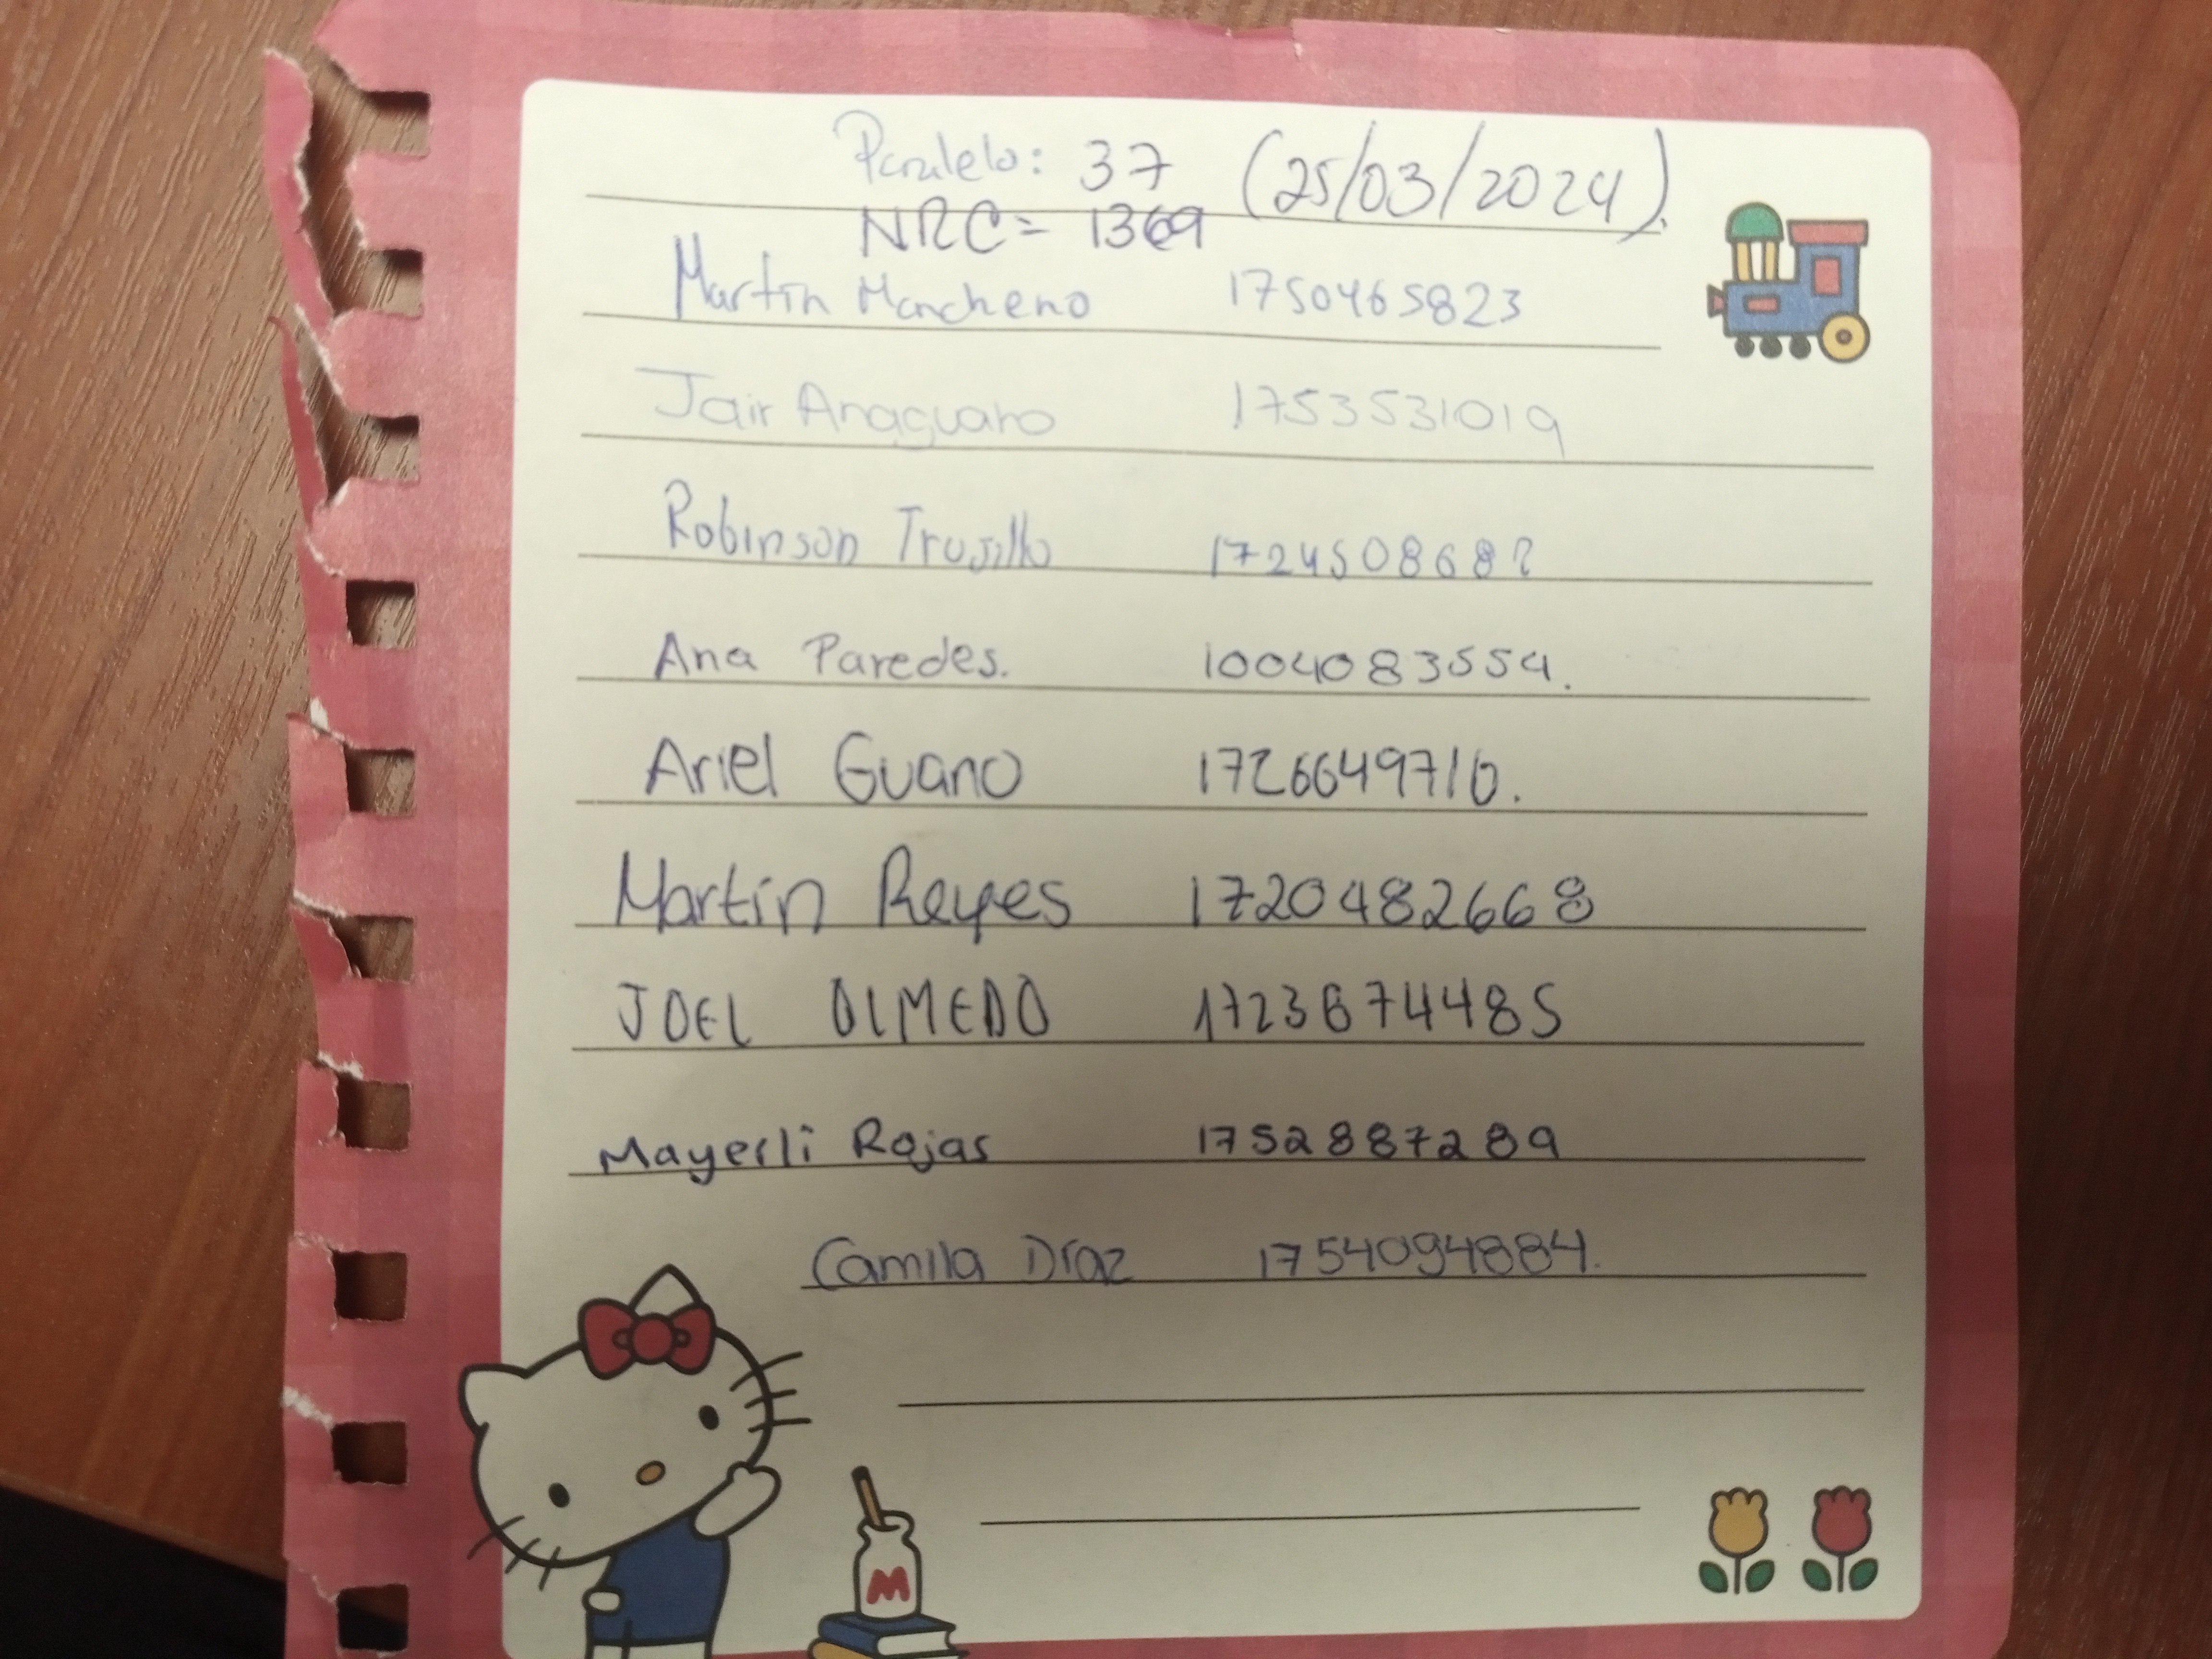 Paralelo: 37 (25/03/2024).
NRC= 1369
Martín Mancheno 1750465823
Jair Anaguano 1753531019
Robinson Trujillo
Ana Paredes. 1004083554.
Ariel Guano 1726649710.
Martín Reyes 1720482668
JOEL OLMEDO 1723674485
Mayerli Rojas 1752887289
Camila Díaz 1754094884.
M